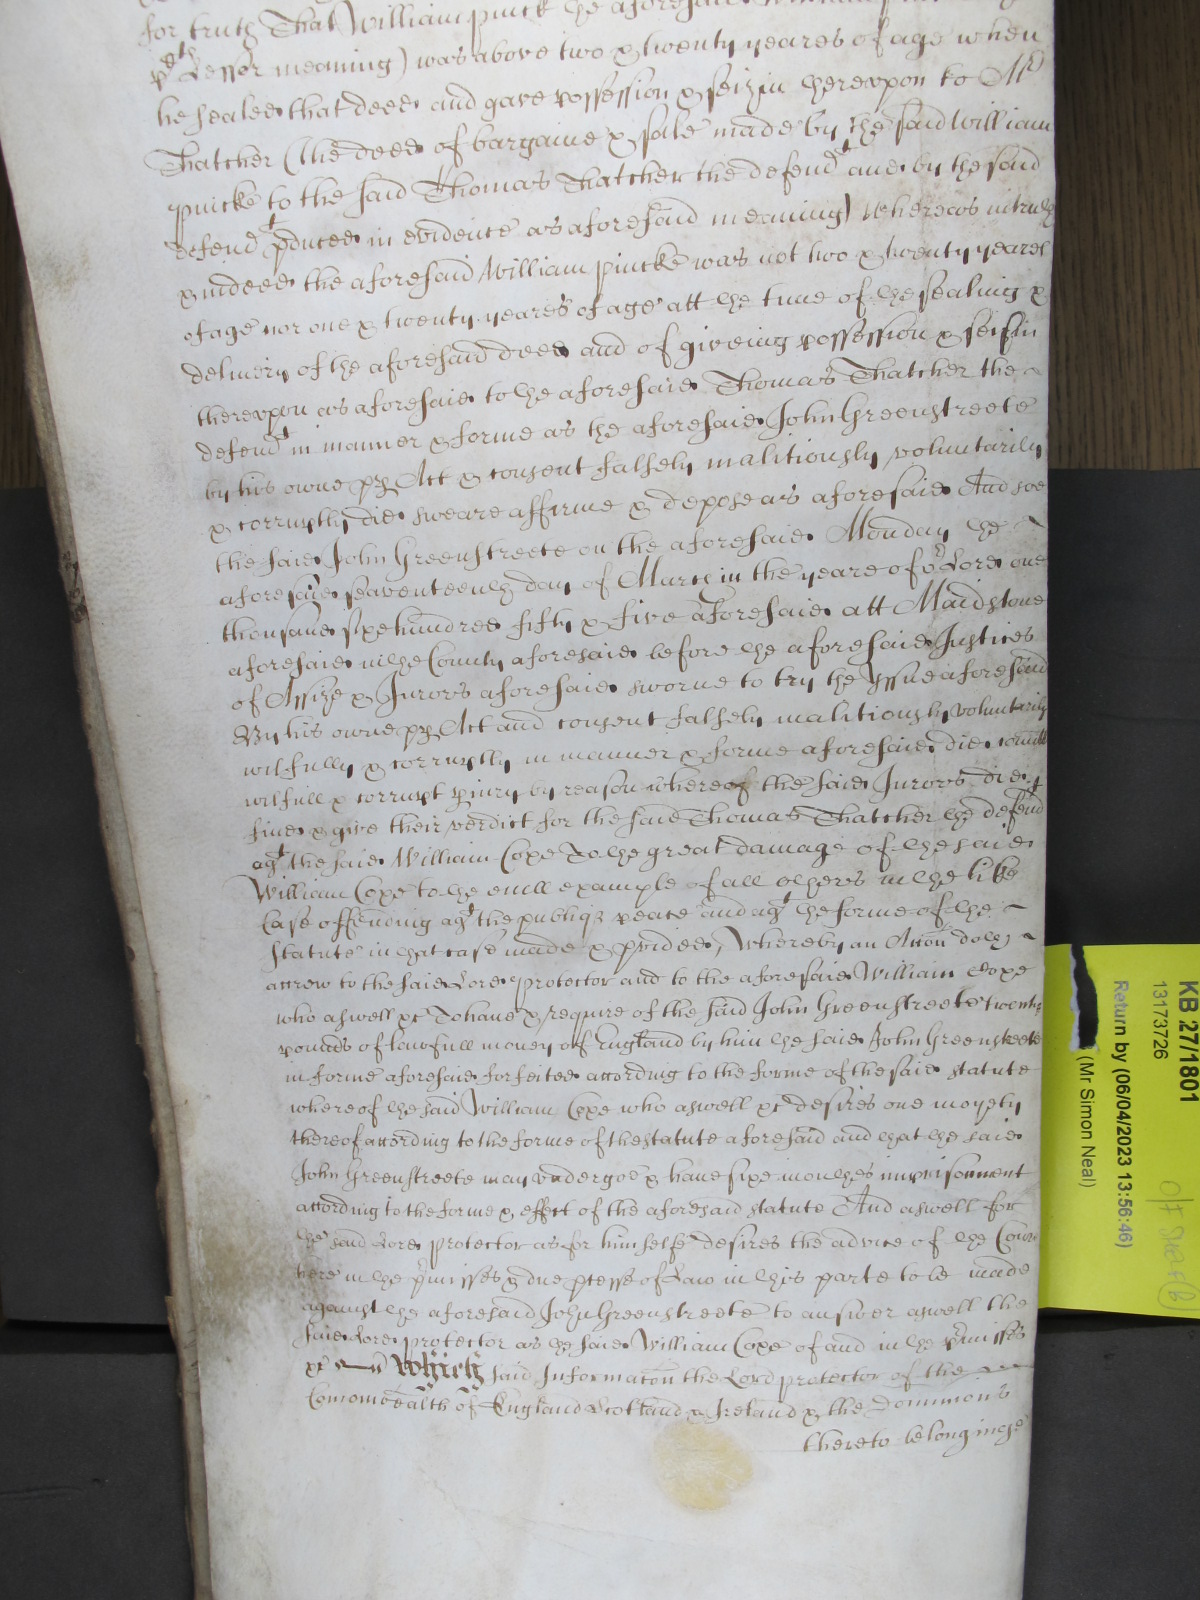 for truth That William pinck the aforesaid
Lessor meaning) was above two & twenty yeares of age when
he sealed that deed and gave possession & seizin thereupon to Mr
Thatcher (the deed of bargaine & sale made by the said William
pincke to the said Thomas Thatcher the defendt and by the said
defendt pduced in evidence as aforesaid meaning) whereas in truth
& indeed the aforesaid William pincke was not two & twenty yeares
of age nor one & twenty yeares of age att the time of the sealing &
delivery of the aforesaid deed and of giveing possession & seisin
thereupon as aforesaid to the aforesaid Thomas Thatcher the
defendt in manner & forme as the aforesaid John Greenstreete
by his owne pp Act & consent falsely malitiously voluntarily
& corruptly did sweare affirme & depose as aforesaid And soe
the said John Greenstreete on the aforesaid Monday the
aforesaid seaventeenth day of March in the yeare of or Lord one
thousand sixe hundred fifty & five aforesaid att Maidstone
aforesaid in the County aforesaid before the aforesaid Justices
of Assize & Jurors aforesaid sworne to try the Yssue aforesaid
By his owne pp Act and consent falsely malitiously voluntarily
wilfully & corruptly in manner & forme aforesaid did comitt
wilfull & corrupt piury by reason whereof the said Jurors did
finde & give their verdict for the said Thomas Thatcher the defendt
agt the said William Coxe To the great damage of the said
William Coxe to the evill example of all others in the like
Case offending agt the publiq peace and agt the forme of the
statute in that case made & pvided, Whereby an Accon doth
accrew to the said Lord protector and to the aforesaid William Coxe
who aswell &c To have & require of the said John Greenstreete twenty
pounds of lawfull money of England by him the said John Greenstreete
in forme aforesaid forfeited according to the forme of the said statute
whereof the said William Coxe who aswell &c desires one moyety
thereof according to the forme of the statute aforesaid and that the said
John Greenstreete may undergoe & have sixe monthes imprisonment
according to the forme & effect of the aforesaid statute And aswell for
the said Lord protector as for himselfe desires the advice of the Court
here in the pmisses & due pcesse of Law in this parte to be made
against the aforesaid John Greenstreete to answer aswell the
said Lord protector as the said William Coxe of and in the pmisses
&c Which said Informacon the Lord protector of the
Comonwealth of England Scotland & Ireland & the Dominions
thereto belonginge
KB 27/1801
13173726
Return by (06/04/2023 13:56:46)
(Mr Simon Neal)